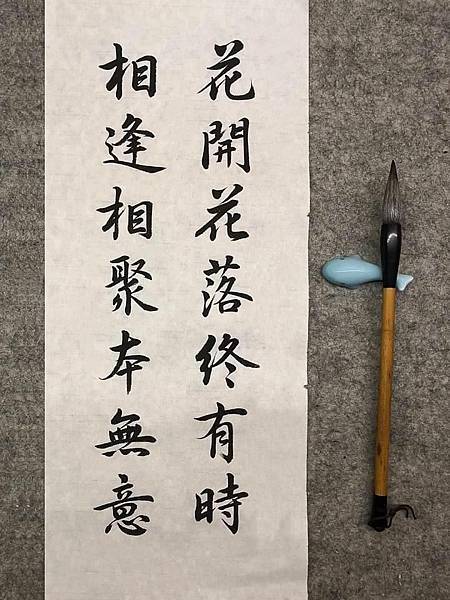 花開花落終有時
相逢相聚本無意